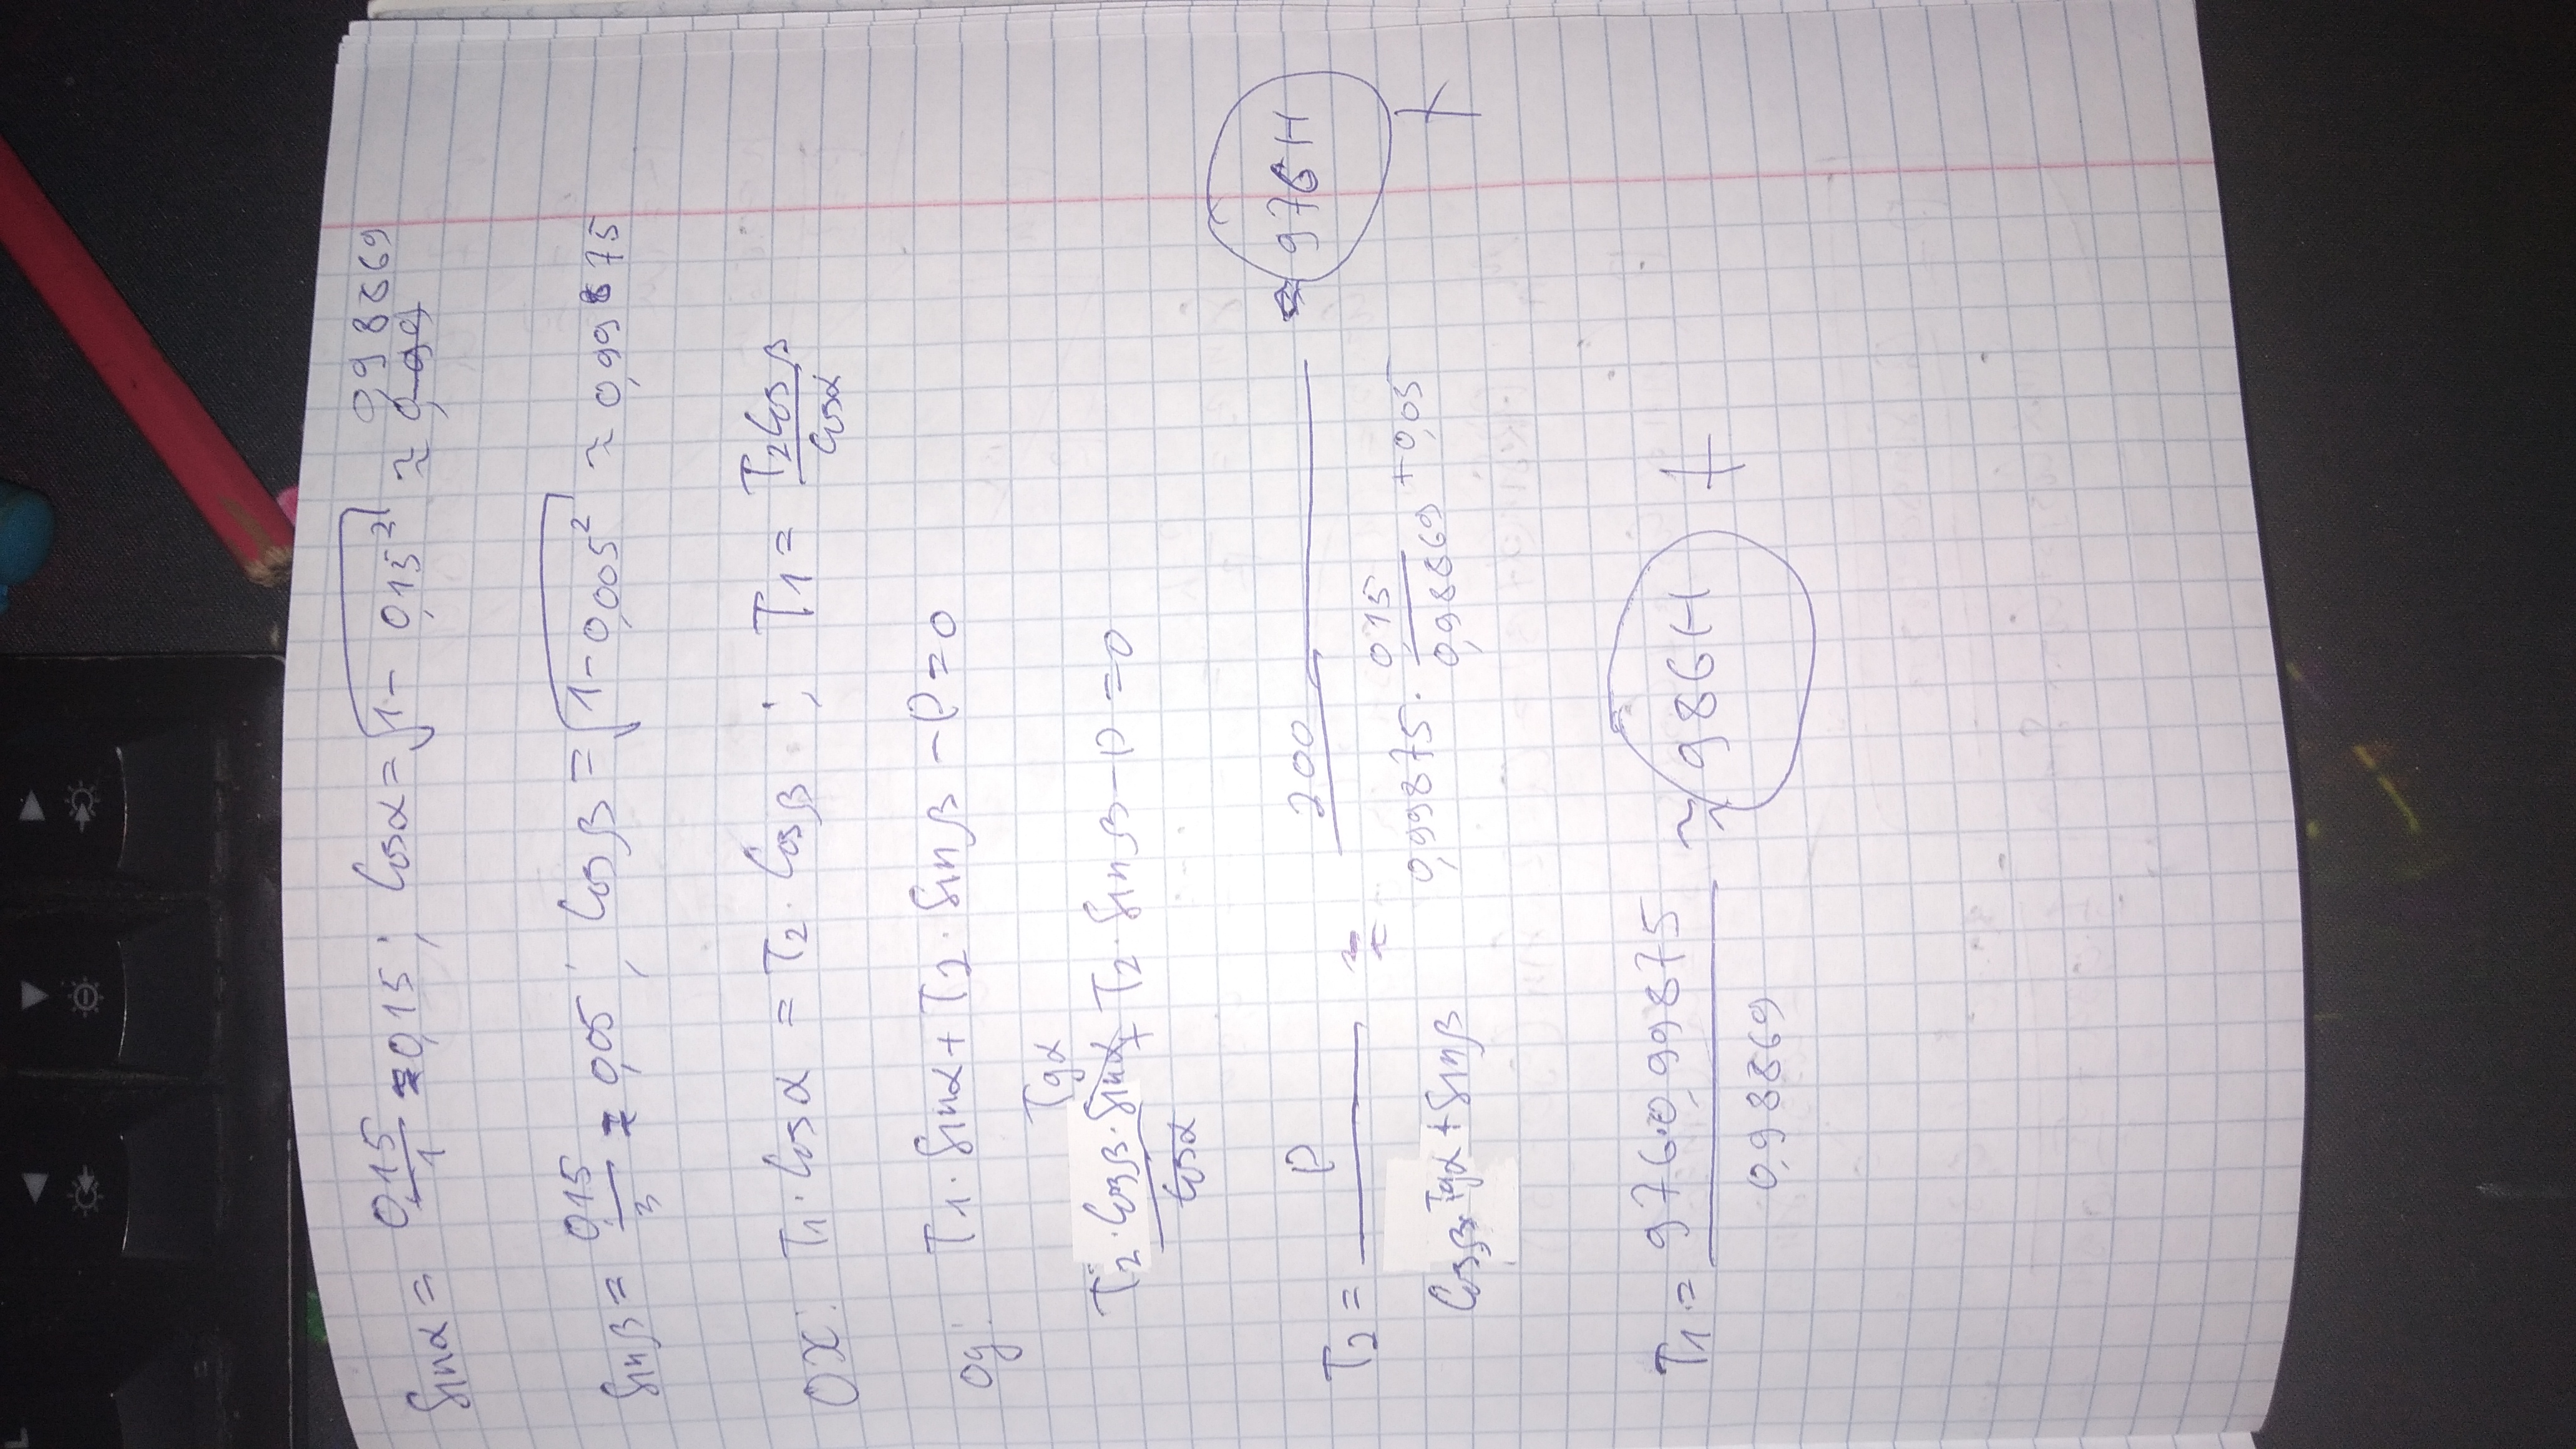 L
sinα = 0,15/1 = 0,15; cosα = √(1 - 0,15²) ≈ 0,98869
sinβ = 0,15/3 = 0,05; cosβ = √(1 - 0,005²) ≈ 0,99875
OX: T1 · cosα = T2 · cosβ ; T1 = T2cosβ/cosα
Oy: T1 · sinα + T2 · sinβ - P = 0
Tgα
T2 · cosβ · sinα/cosα + T2 · sinβ - P = 0
T2 = P/(cosβ · Tgα + sinβ) ≈ 200/(0,99875 · 0,15/0,98869 + 0,05) = 976H
T1 = 976·0,99875/0,98869 ≈ 986H +